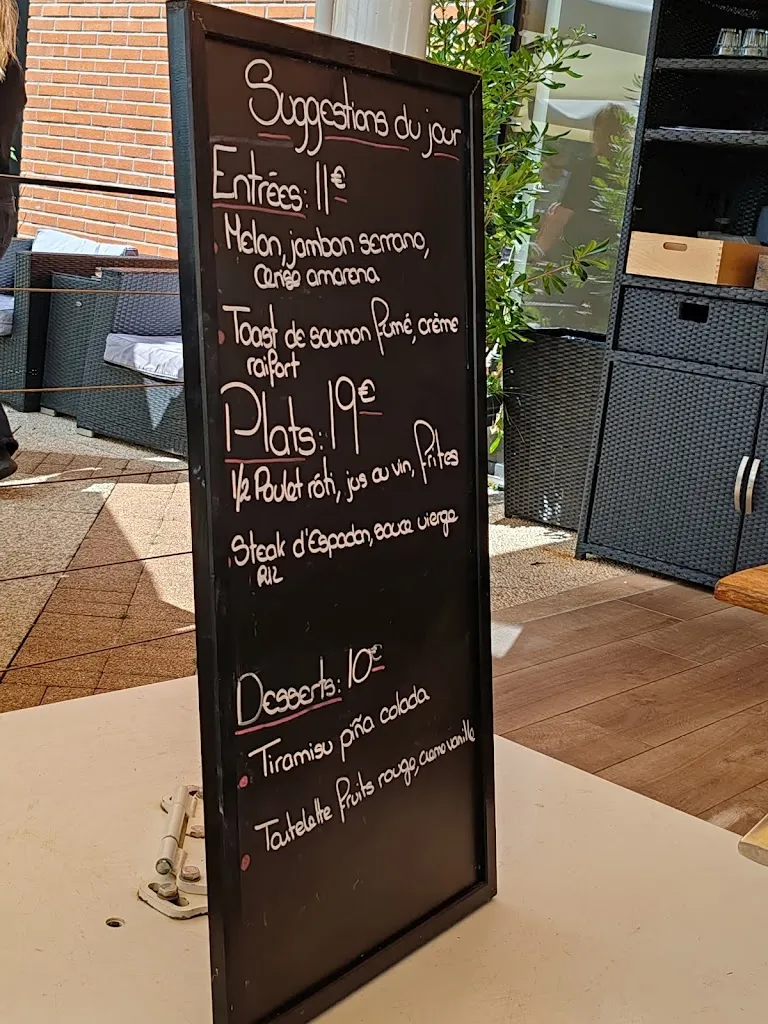 Suggestions du jour
Entrées: 11€
Melon, jambon serrano,
cerise amarena
Toast de saumon fumé, crème
raifort
Plats: 19€
1/2 Poulet rôti, jus au vin, frites
Steak d'Espadon, sauce vierge
Riz
Desserts: 10€
Tiramisu piña colada
Tartelette fruits rouge, creme vanille